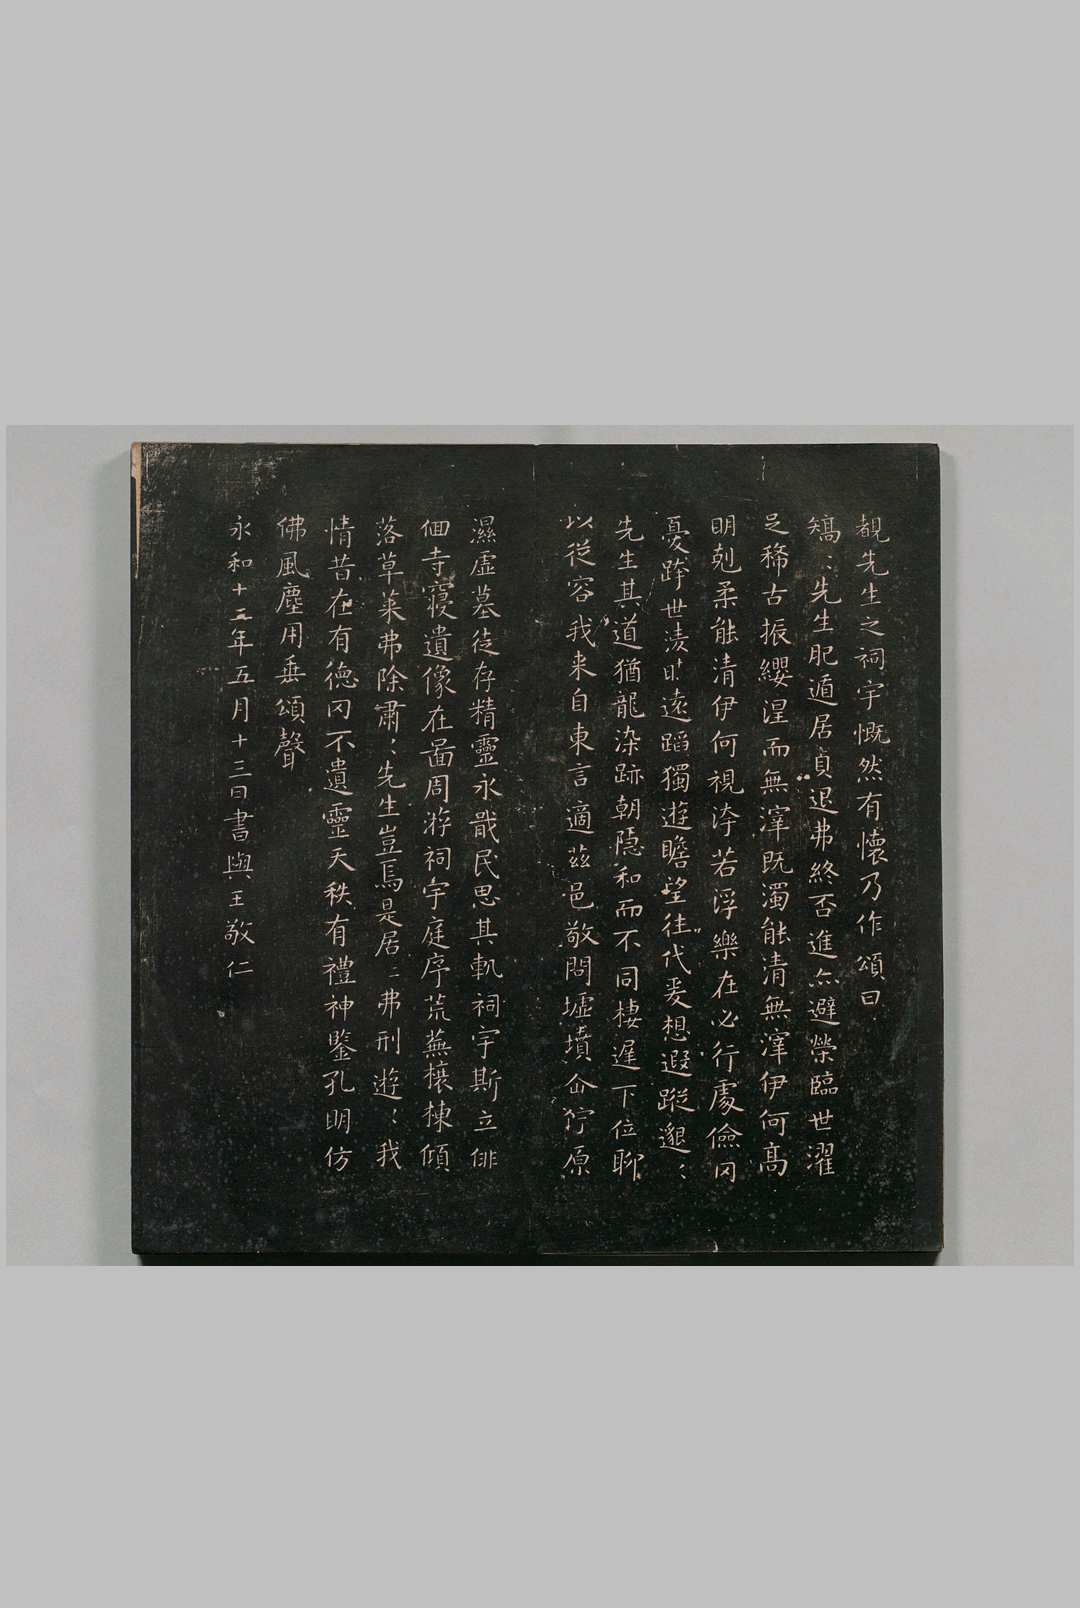 覩先生之祠宇慨然有懷乃作頌曰
矯〻先生肥遁居貞退弗終否進亦避榮臨世濯
足稀古振纓涅而無滓既濁能清無滓伊何高
明剋柔能清伊何視汙若浮樂在必行處儉罔
憂跨世凌時遠蹈獨遊瞻望往代爰想遐蹤邈〻
先生其道猶龍染跡朝隱和而不同棲遲下位聊
以從容我来自東言適茲邑敬問墟墳企佇原
濕虛墓徒存精靈永戢民思其軌祠宇斯立徘
佪寺寝遺像在啚周游祠宇庭序荒蕪榱棟傾
落草萊弗除肅〻先生豈焉是居〻弗刑遊〻我
情昔在有德罔不遺靈天秩有禮神鑒孔明仿
佛風塵用垂頌聲
永和十二年五月十三日書與王敬仁